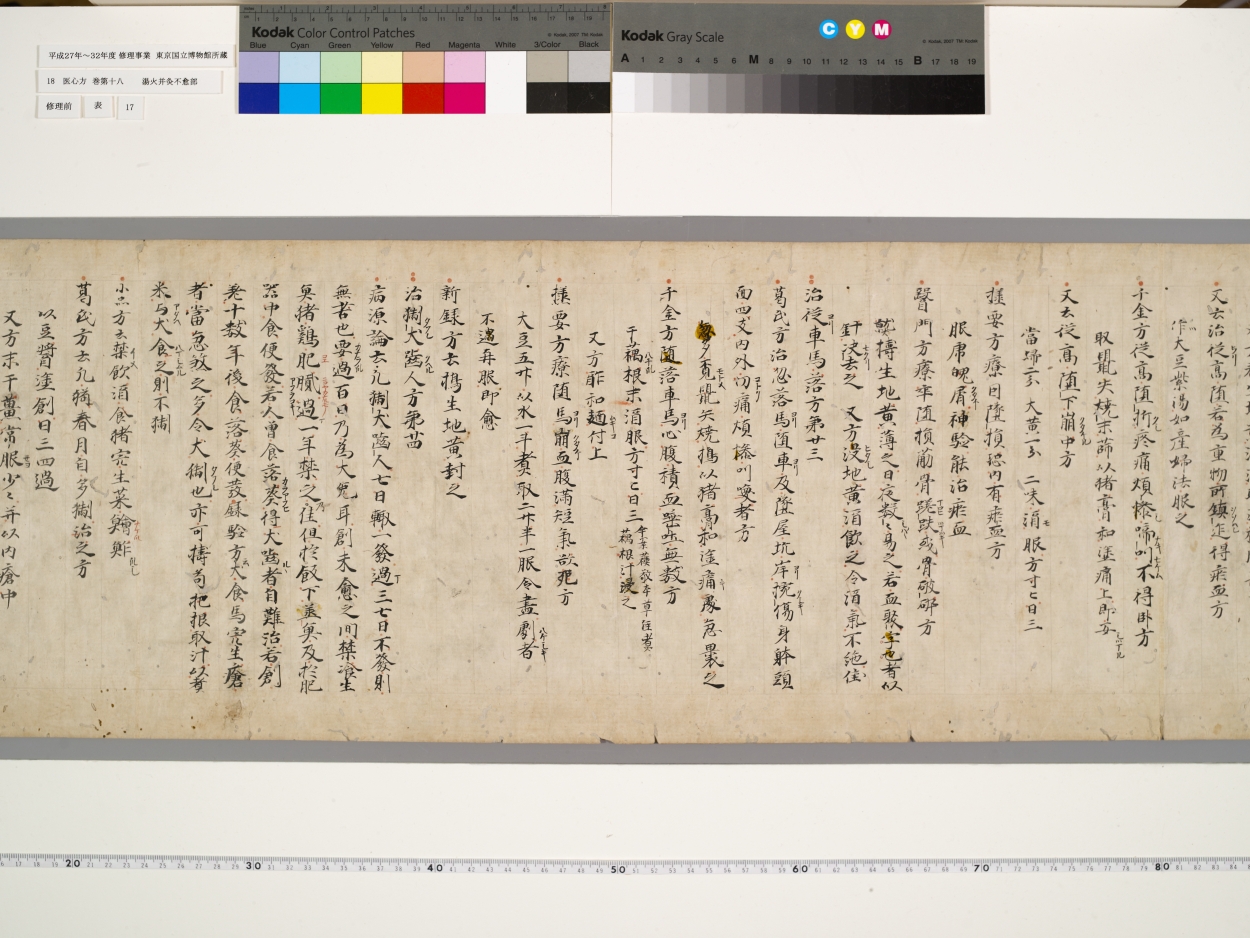 平成27年～32年度 修理事業 東京国立博物館所蔵
18 医心方 巻第十八 湯火并灸不愈部
修理前 表 17
Kodak Color Control Patches
Blue Cyan Green Yellow Red Magenta White 3/Color Black
Kodak Gray Scale
C Y M
A 1 2 3 4 5 6 M 8 9 10 11 12 13 14 15 B 17 18 19
又云治從高堕若為重物所鎮迮得瘀血方
作大豆紫湯如産婦法服之
千金方從高堕折疼痛煩躁啼叫不得卧方
取鼠矢燒末篩以猪膏和塗痛上即安
又云從高堕下崩中方
當歸二分 大黄一分 二味酒服方寸匕日三
極要方療因墜損恐内有瘀血方
服席魄屑神驗能治瘀血
醫門方療卒堕損筋骨蹉跌或骨破碎方
熟擣生地黄薄之日夜數易之若血聚者以
針決去之 又方没地黄酒飲之令酒氣不絶佳
治從車馬落方第廿三
葛氏方治忽落馬堕車及墜屋坑岸捥傷身躰頭
面四支内外切痛煩躁叫喚者方
多覓鼠矢燒擣以猪膏和塗痛處急裹之
千金方堕落車馬心腹積血唾吐無數方
干藕根末酒服方寸匕日三
又方酢和麺付上
極要方療堕馬崩血腹滿短氣欲死方
大豆五升以水一斗煮取二升半一服令盡劇者
不過再服即愈
新録方云擣生地黄封之
治猘犬齧人方第廿四
病源論云凡猘犬齧人七日輙一發過三七日不發則
無苦也要過百日乃為大免耳創未愈之間禁食生
臭猪鷄肥膩過一年禁之佳但於飯下蒸臭及於肥
器中食便發若人曽食落葵得犬齧者自難治若創
老十數年後食落葵便發録驗方犬食馬完生瘡
者當急煞之多令犬猘也亦可擣苟杞根取汁以煮
米与犬食之則不猘
小品方云禁飲酒食猪完生菜鱠鮓
葛氏方云凡猘春月自多猘治之方
以豆醤塗創日三四過
又方末干薑常服少々并以内瘡中
20 30 40 50 60 70 80